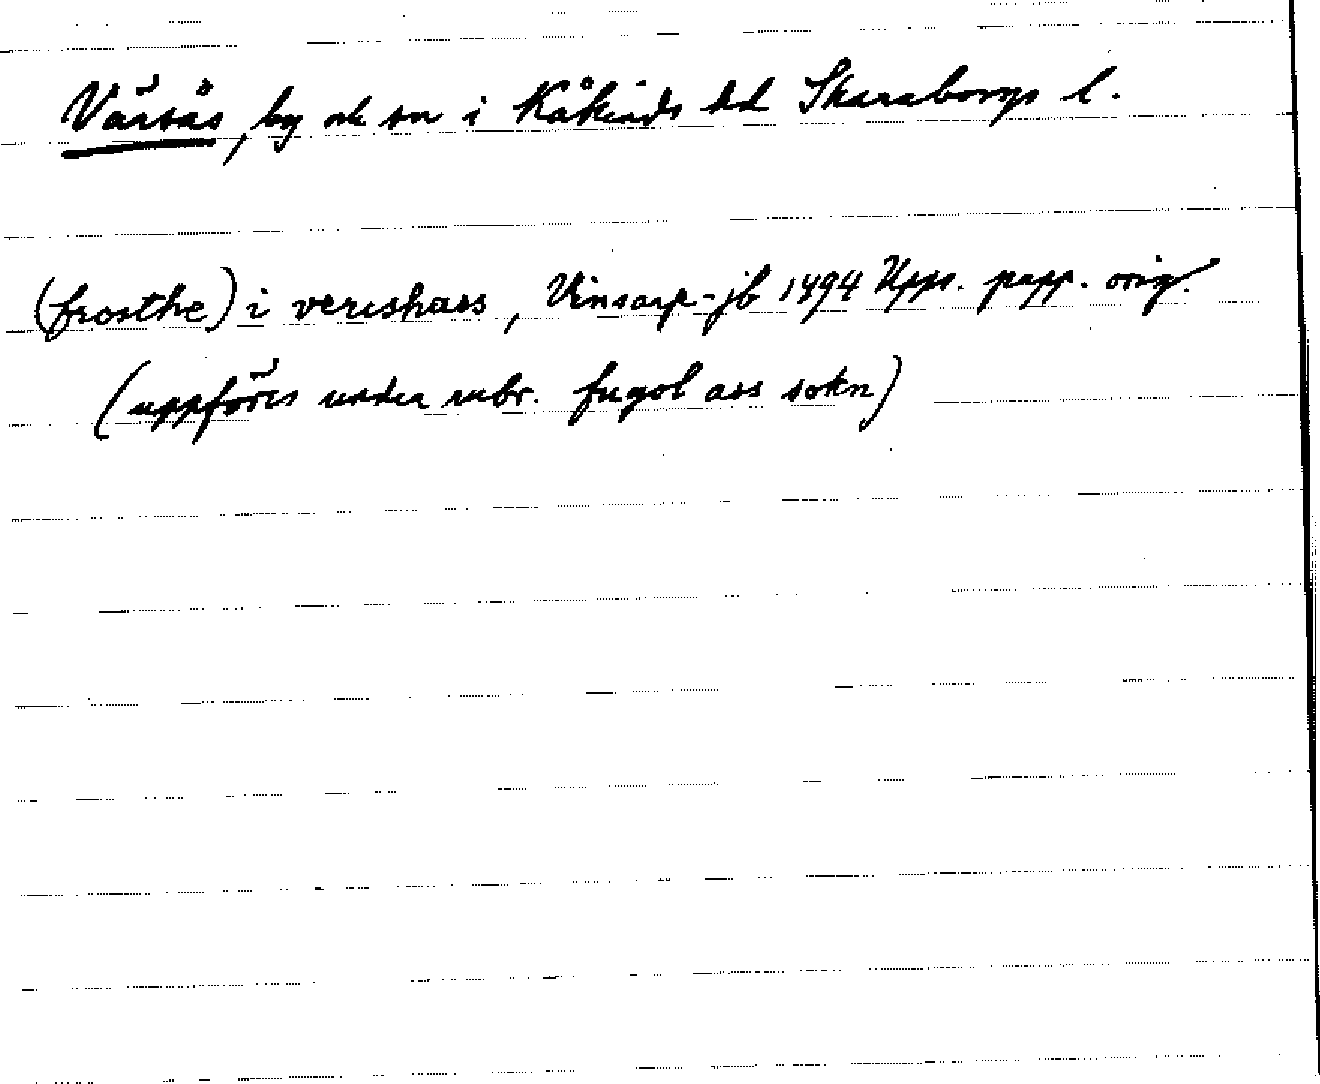 Värsås, by och sn i Kåkinds hd Skaraborgs l.
(frosthe) i vereshass, Vinsarp-jb 1494 Upps. papp. orig.
(uppföres under rubr. fugol ass sokn)